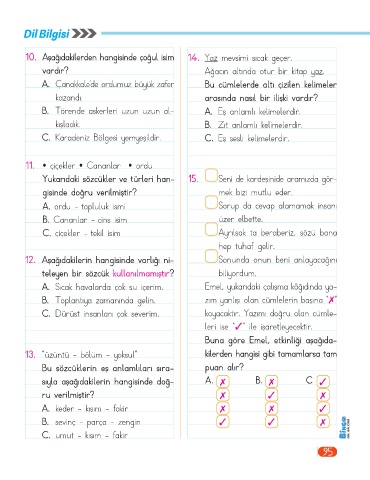 Dil Bilgisi
10. Aşağıdakilerden hangisinde çoğul isim
vardır?
A. Çanakkale'de ordumuz büyük zafer
kazandı.
B. Törende askerleri uzun uzun al-
kışladık.
C. Karadeniz Bölgesi yemyeşildir.
11. • çiçekler • Cananlar • ordu
Yukarıdaki sözcükler ve türleri han-
gisinde doğru verilmiştir?
A. ordu - topluluk ismi
B. Cananlar - cins isim
C. çiçekler - tekil isim
12. Aşağıdakilerin hangisinde varlığı ni-
teleyen bir sözcük kullanılmamıştır?
A. Sıcak havalarda çok su içerim.
B. Toplantıya zamanında gelin.
C. Dürüst insanları çok severim.
13. "üzüntü - bölüm - yoksul"
Bu sözcüklerin eş anlamlıları sıra-
sıyla aşağıdakilerin hangisinde doğ-
ru verilmiştir?
A. keder - kısım - fakir
B. sevinç - parça - zengin
C. umut - kısım - fakir
14. Yaz mevsimi sıcak geçer.
Ağacın altında otur bir kitap yaz.
Bu cümlelerde altı çizilen kelimeler
arasında nasıl bir ilişki vardır?
A. Eş anlamlı kelimelerdir.
B. Zıt anlamlı kelimelerdir.
C. Eş sesli kelimelerdir.
15. Seni de kardeşinide aramızda gör-
mek bizi mutlu eder.
Sorup da cevap alamamak insanı
üzer elbette.
Ayrılsak ta beraberiz, sözü bana
hep tuhaf gelir.
Sonunda onun beni anlayacağını
biliyordum.
Emel, yukarıdaki çalışma kâğıdında ya-
zım yanlışı olan cümlelerin başına "✗"
koyacaktır. Yazımı doğru olan cümle-
leri ise "✓" ile işaretleyecektir.
Buna göre Emel, etkinliği aşağıda-
kilerden hangisi gibi tamamlarsa tam
puan alır?
A. ✗ B. ✗ C. ✓
✗ ✓ ✗
✗ ✗ ✓
✓ ✓ ✗
95